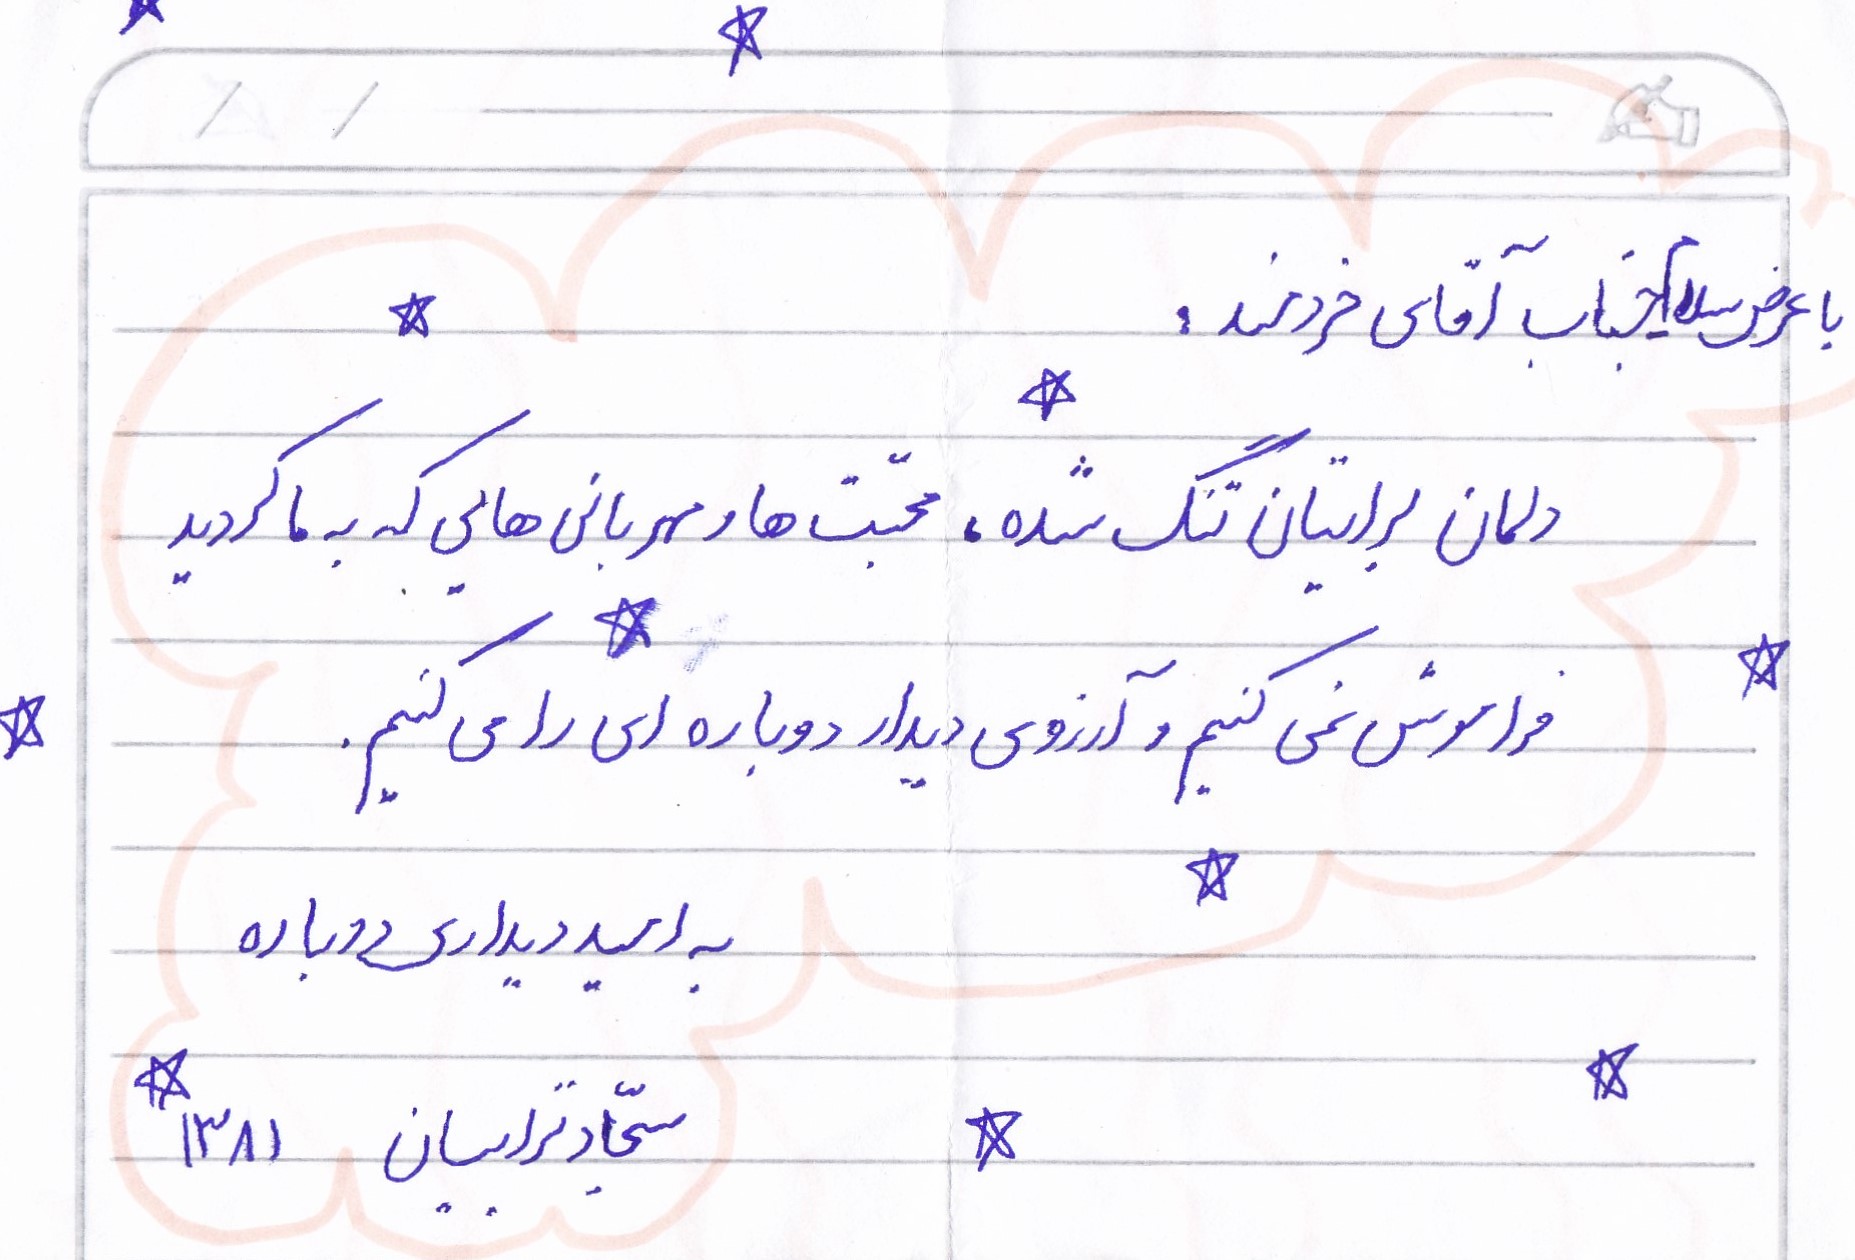 با عرض سلام جناب آقای خردمند :
دلمان برایتان تنگ شده ، محبّت ها و مهربانی هایی که به ما کردید
فراموش نمی کنیم و آرزوی دیدار دوباره ای را می کنیم .
به امید دیداری دوباره
سجّاد ترابیان ۱۳۸۱